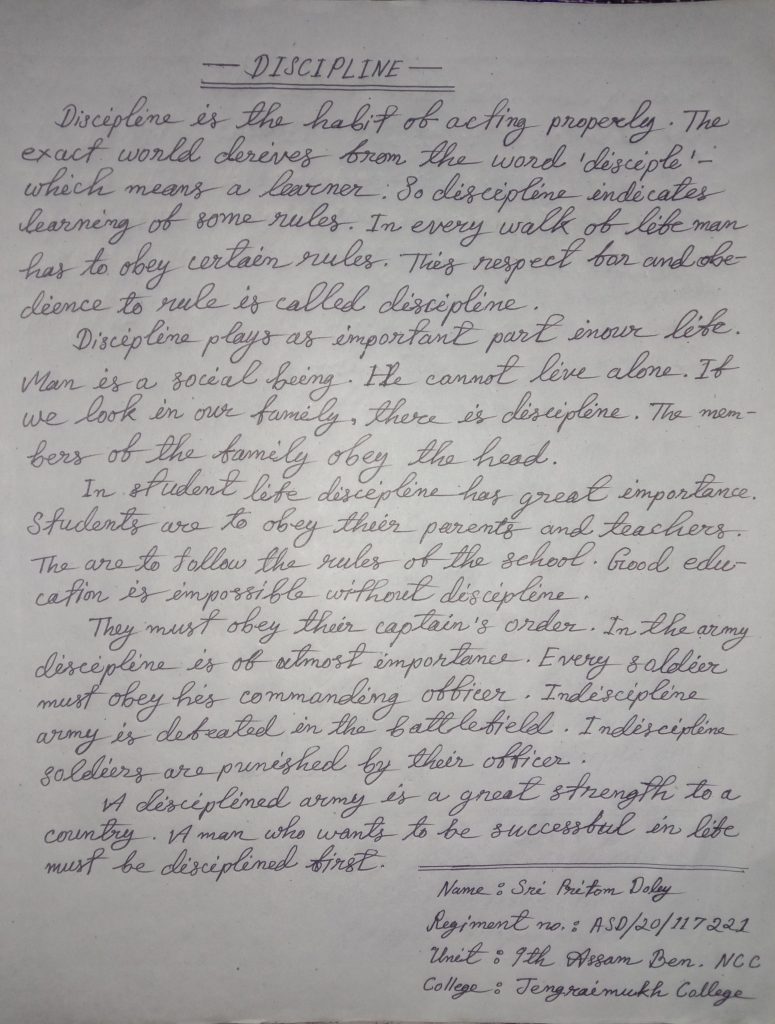 — DISCIPLINE —
Discipline is the habit of acting properly. The
exact world derives from the word 'disciple'-
which means a learner. So discipline indicates
learning of some rules. In every walk of life man
has to obey certain rules. This respect for and obe-
dience to rule is called discipline.
Discipline plays as important part in our life.
Man is a social being. He cannot live alone. If
we look in our family, there is discipline. The mem-
bers of the family obey the head.
In student life discipline has great importance.
Students are to obey their parents and teachers.
The are to follow the rules of the school. Good edu-
cation is impossible without discipline.
They must obey their captain's order. In the army
discipline is of utmost importance. Every soldier
must obey his commanding officer. Indiscipline
army is defeated in the battlefield. Indiscipline
soldiers are punished by their officer.
A disciplined army is a great strength to a
country. A man who wants to be successful in life
must be disciplined first.
Name : Sri Pritom Doley
Regiment no. : ASD/20/117221
Unit : 9th Assam Ben. NCC
College : Jengraimukh College